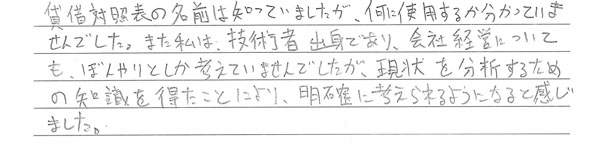 貸借対照表の名前は知っていましたが、何に使用するか分かっていま
せんでした。また私は、技術者出身であり、会社経営について
も、ぼんやりとしか考えていませんでしたが、現状を分析するため
の知識を得たことにより、明確に考えられるようになると感じ
ました。